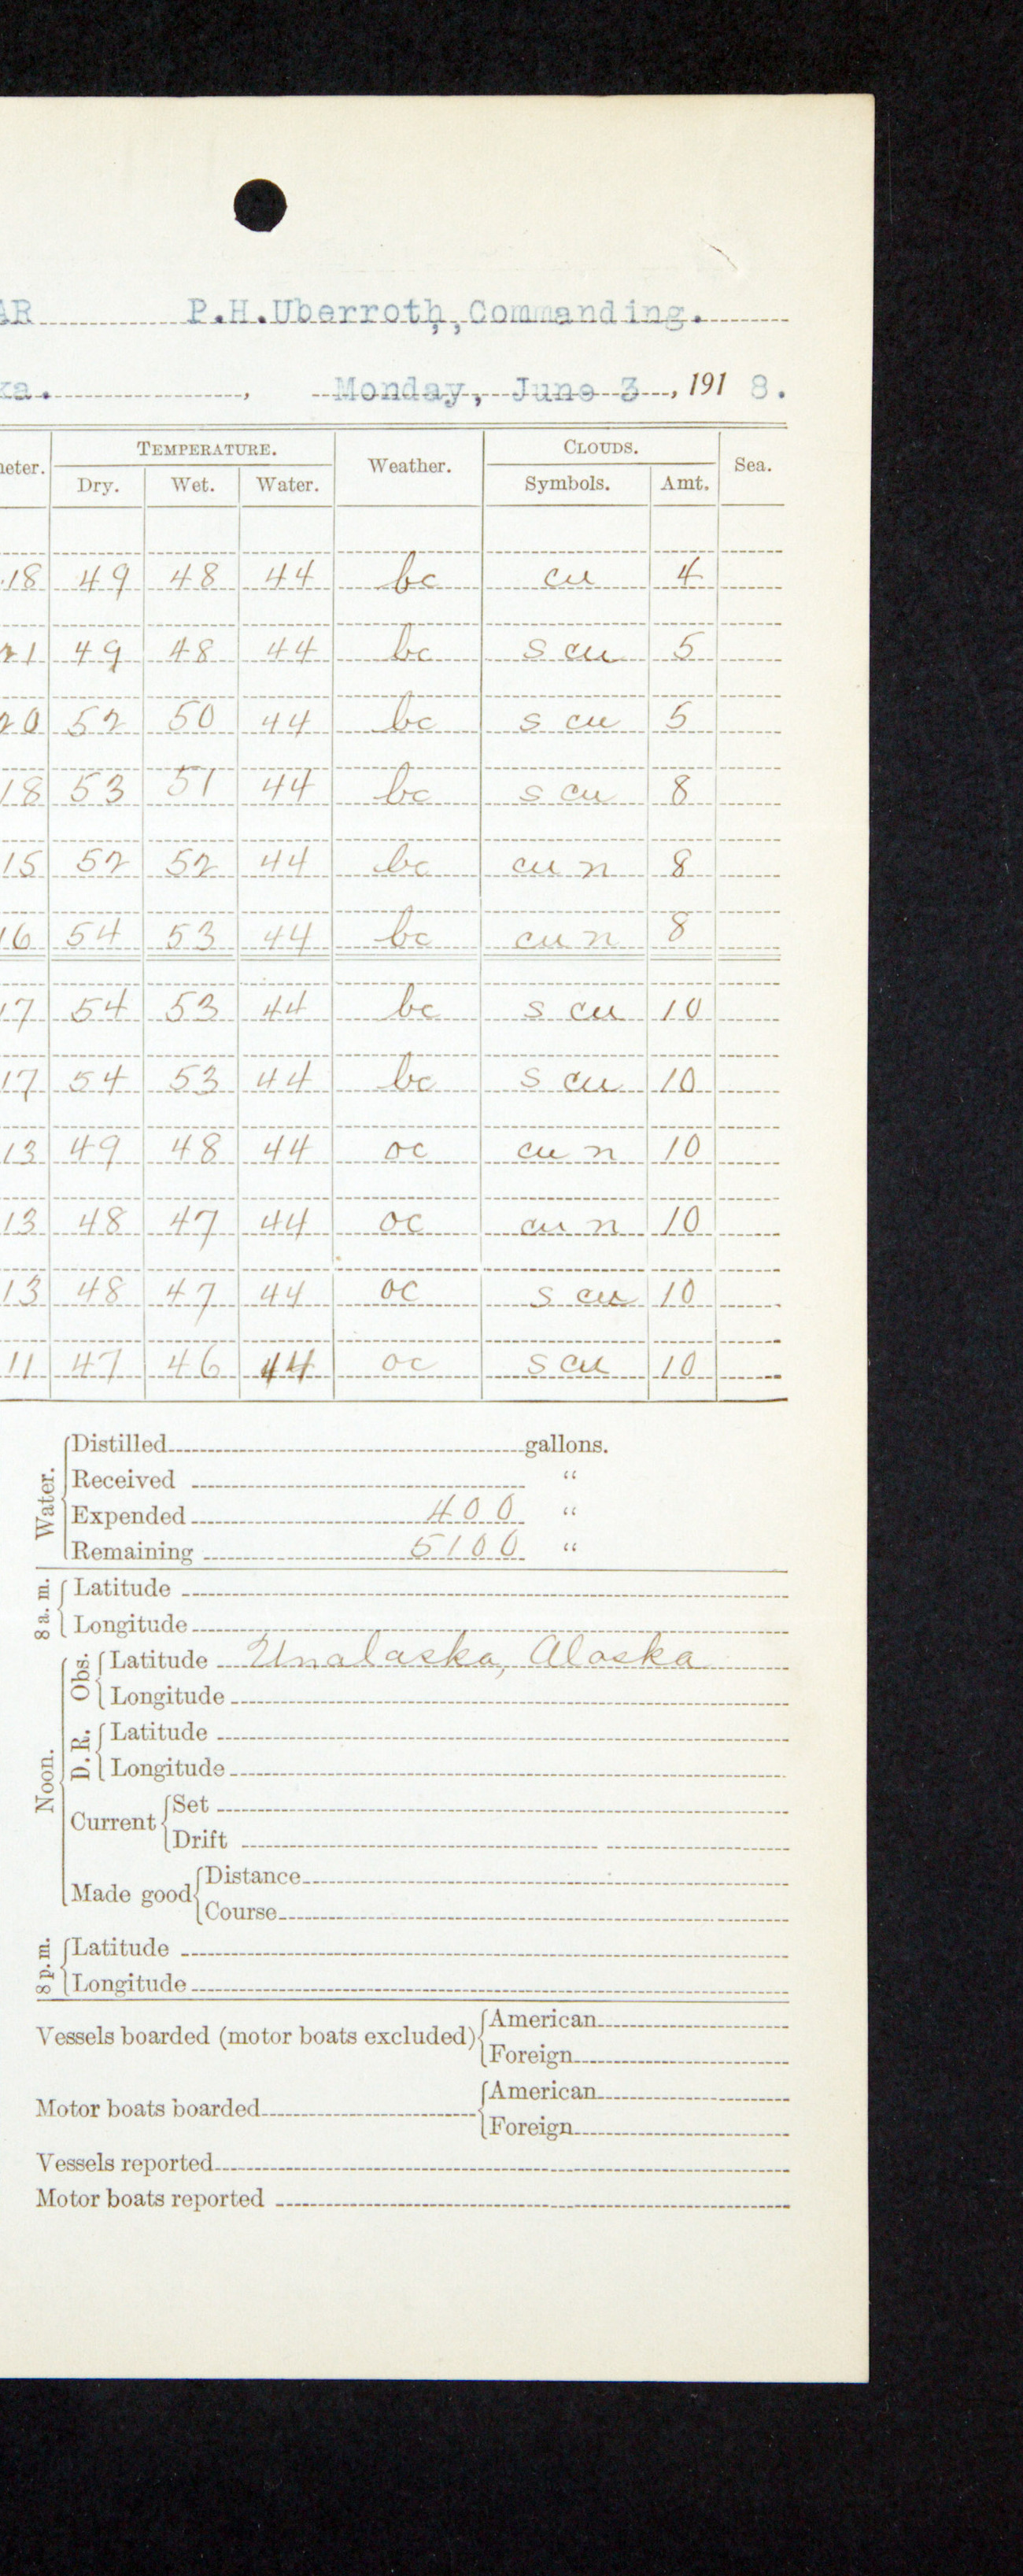 AR P.H.Uberroth,,Commanding.
ka. , Monday, June 3, 1918.
meter. TEMPERATURE. Weather. CLOUDS. Sea.
Dry. Wet. Water. Symbols. Amt.
.18 49 48 44 bc cu 4
21 49 48 44 bc s cu 5
20 52 50 44 bc s cu 5
18 53 51 44 bc s cu 8
15 52 52 44 bc cu n 8
16 54 53 44 bc cu n 8
17 54 53 44 bc s cu 10
17 54 53 44 bc s cu 10
13 49 48 44 oc cu n 10
13 48 47 44 oc cu n 10
13 48 47 44 oc s cu 10
11 47 46 44 oc s cu 10
Water.
Distilled gallons.
Received "
Expended 400 "
Remaining 5100 "
8 a. m.
Latitude
Longitude
Noon.
Obs.
Latitude Unalaska, Alaska
Longitude
D. R.
Latitude
Longitude
Current
Set
Drift
Made good
Distance
Course
8 p. m.
Latitude
Longitude
Vessels boarded (motor boats excluded)
American
Foreign
Motor boats boarded
American
Foreign
Vessels reported
Motor boats reported